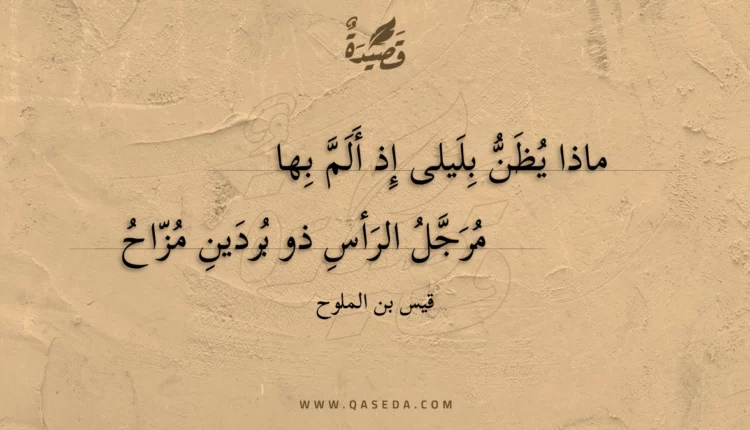 قَصِيدَةٌ
ماذا يُظَنُّ بِلَيلى إِذ أَلَمَّ بِها
مُرَجَّلُ الرَأسِ ذو بُردَينِ مُزّاحُ
قيس بن الملوح
WWW.QASEDA.COM